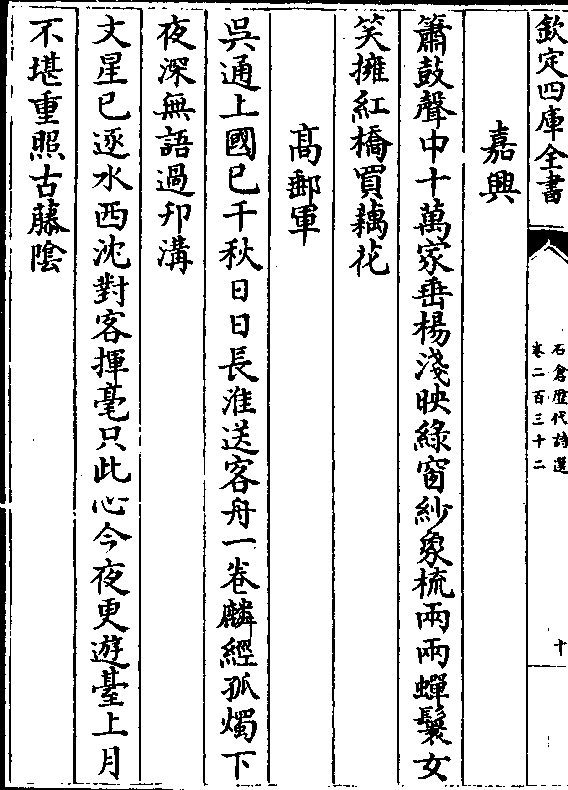 欽定四庫全書
石倉歷代詩選
卷二百三十二
十
嘉興
簫鼓聲中十萬家垂楊淺映綠窗紗象梳兩兩蟬鬟女
笑擁紅橋買藕花
高郵軍
吳通上國已千秋日日長淮送客舟一卷麟經孤燭下
夜深無語過邗溝
文星已逐水西沈對客揮毫只此心今夜更遊臺上月
不堪重照古藤陰